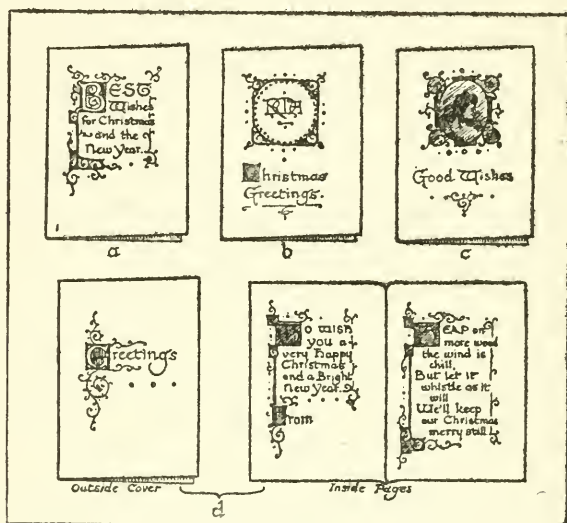 BEST
Wishes
for Christmas
and the
New Year.
a
Christmas
Greetings.
b
Good Wishes
c
Greetings
Outside Cover
To wish
you a
very happy
Christmas
and a Bright
New Year.
From
HEAP on
more wood
the wind is
chill,
But let it
whistle as it
will
We'll keep
our Christmas
merry still
Inside Pages
d